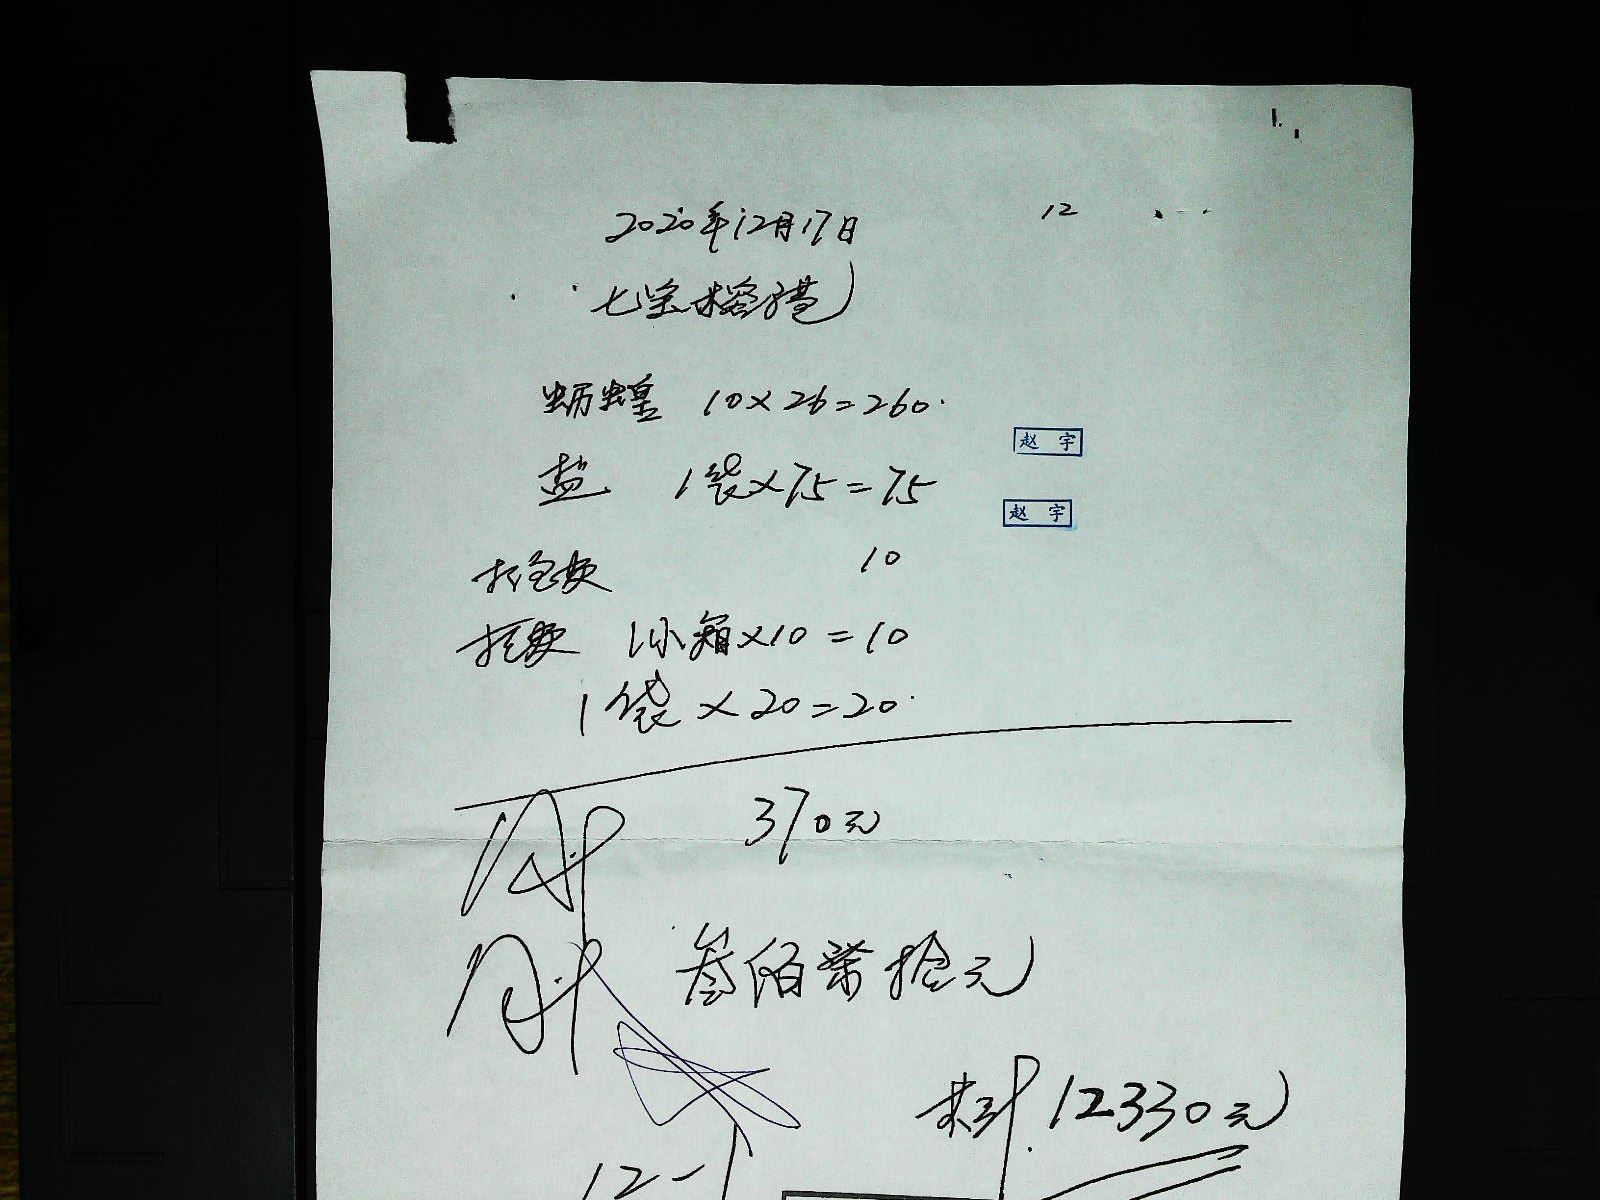 12
2020年12月17日
七宝
蚂蝗 10×26=260
赵 宇
盐 1袋×75=75
赵 宇
打包费 10
1小箱×10=10
1袋×20=20
370元
叁佰柒拾元
12330元
12-1